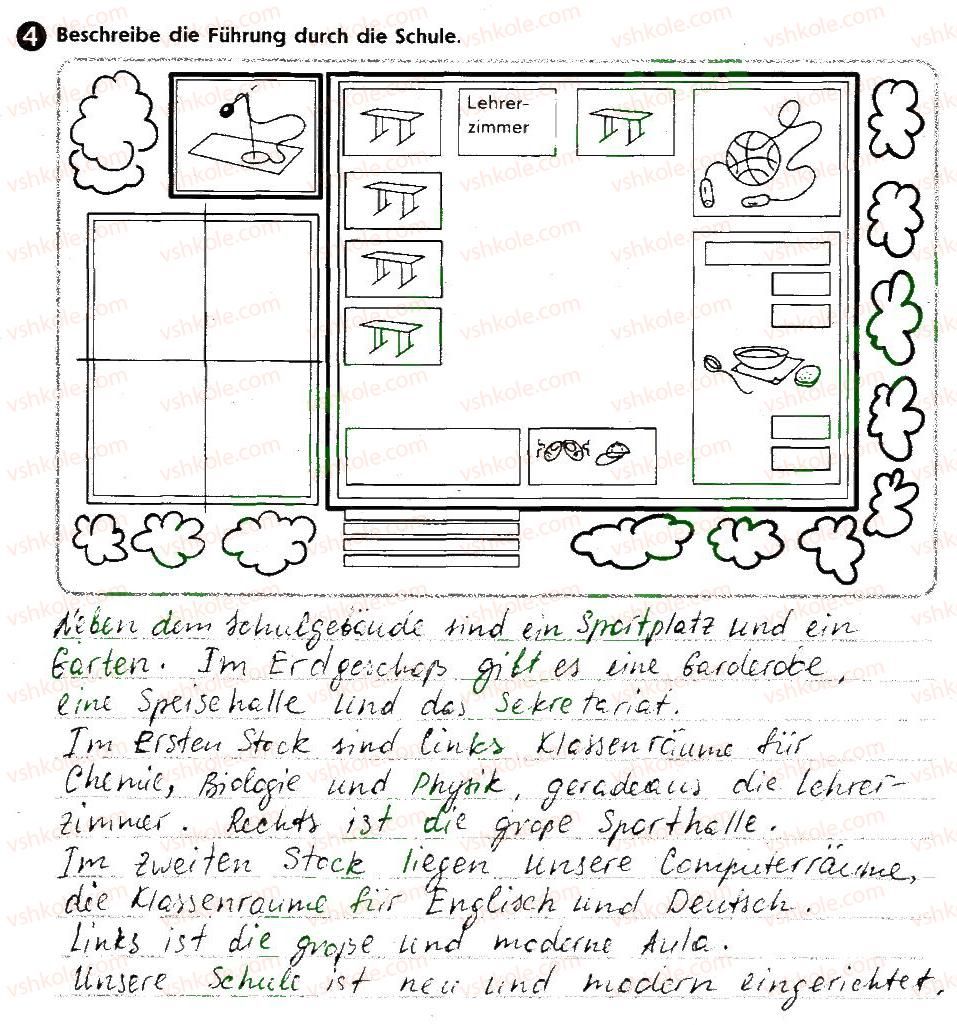 4 Beschreibe die Führung durch die Schule.
Lehrer-
zimmer
Neben dem Schulgebäude sind ein Sportplatz und ein
Garten. Im Erdgeschoß gibt es eine Garderobe,
eine Speisehalle und das Sekretariat.
Im ersten Stock sind links Klassenräume für
Chemie, Biologie und Physik, geradeaus die Lehrer-
zimmer. Rechts ist die große Sporthalle.
Im zweiten Stock liegen unsere Computerräume,
die Klassenraume für Englisch und Deutsch.
Links ist die große und moderne Aula.
Unsere Schule ist neu und modern eingerichtet.